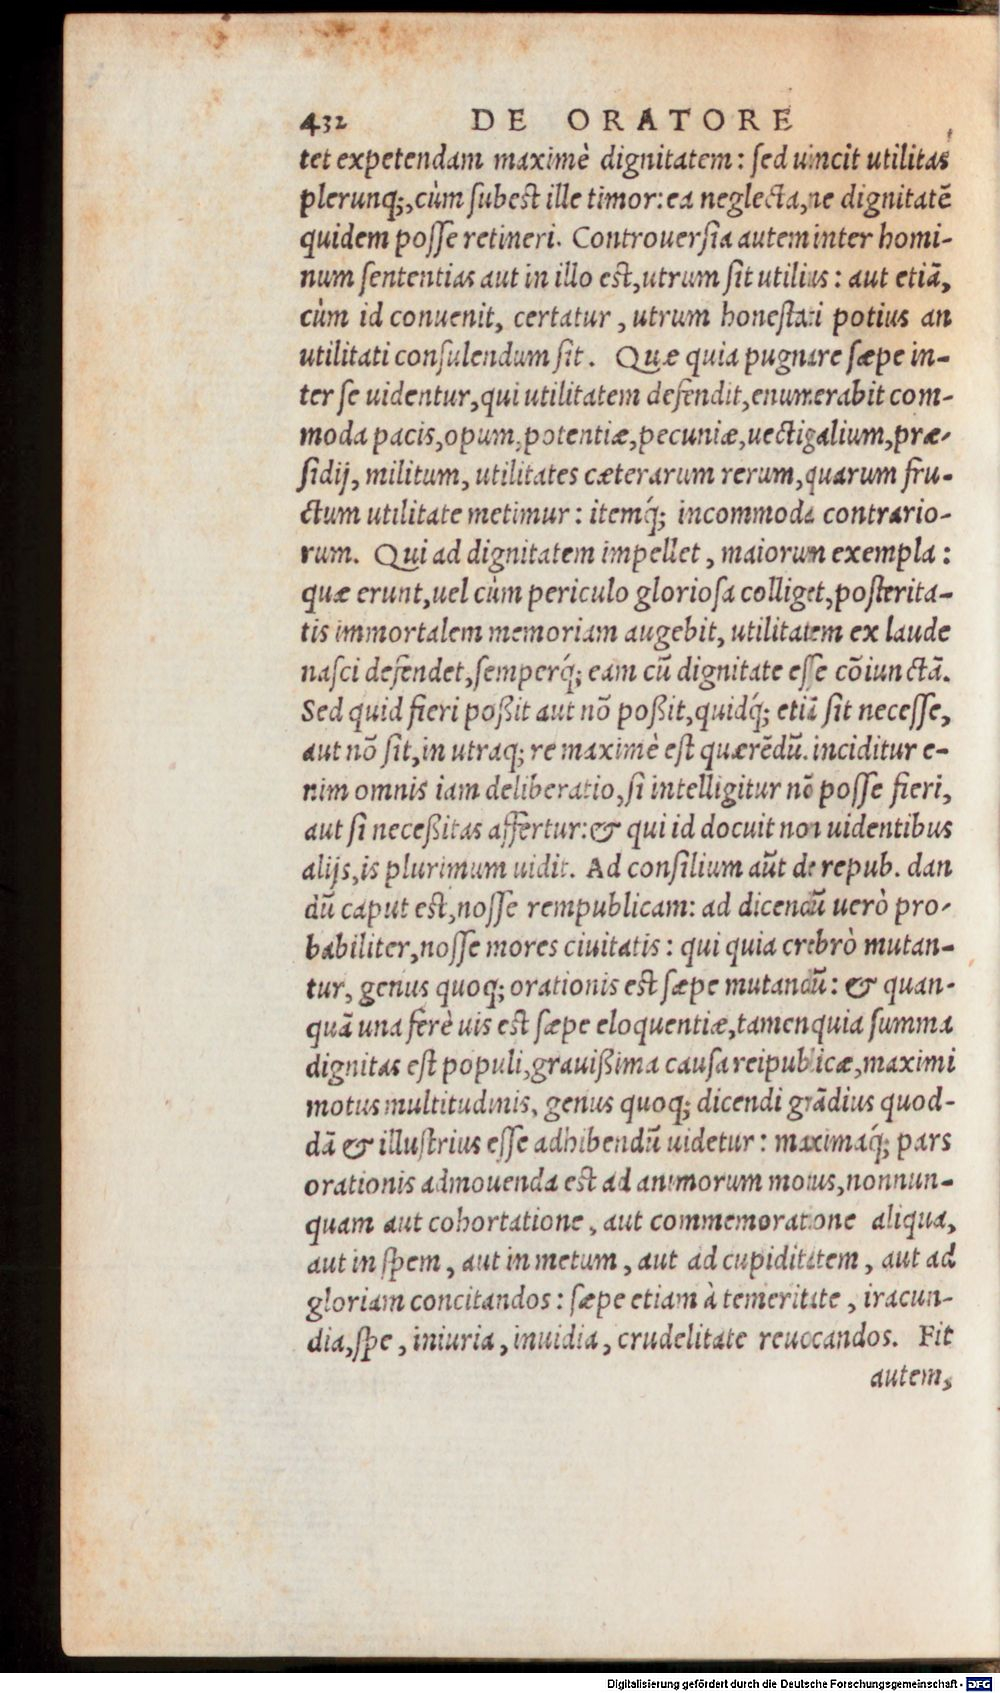 432 DE ORATORE
tet expetendam maximè dignitatem: sed uincit utilitas
plerunq;, cùm subest ille timor: ea neglecta, ne dignitatẽ
quidem posse retineri. Controuersia autem inter homi-
num sententias aut in illo est, utrum sit utilius: aut etiã,
cùm id conuenit, certatur, utrum honestati potius an
utilitati consulendum sit. Quæ quia pugnare sæpe in-
ter se uidentur, qui utilitatem defendit, enumerabit com-
moda pacis, opum, potentiæ, pecuniæ, uectigalium, præ-
sidij, militum, utilitates cæterarum rerum, quarum fru-
ctum utilitate metimur: itemq́; incommoda contrario-
rum. Qui ad dignitatem impellet, maiorum exempla:
quæ erunt, uel cùm periculo gloriosa colliget, posterita-
tis immortalem memoriam augebit, utilitatem ex laude
nasci defendet, semperq́; eam cũ dignitate esse cõiunctã.
Sed quid fieri poßit aut nõ poßit, quidq́; etiã sit necesse,
aut nõ sit, in utraq; re maximè est quærẽdũ. inciditur e-
nim omnis iam deliberatio, si intelligitur nõ posse fieri,
aut si neceßitas affertur: & qui id docuit non uidentibus
alijs, is plurimum uidit. Ad consilium aũt de repub. dan
dũ caput est, nosse rempublicam: ad dicendũ uerò pro-
babiliter, nosse mores ciuitatis: qui quia crebrò mutan-
tur, genus quoq; orationis est sæpe mutandũ: & quan-
quã una ferè uis est sæpe eloquentiæ, tamen quia summa
dignitas est populi, grauißima causa reipublicæ, maximi
motus multitudinis, genus quoq; dicendi grãdius quod-
dã & illustrius esse adhibendũ uidetur: maximaq́; pars
orationis admouenda est ad animorum motus, nonnun-
quam aut cohortatione, aut commemoratione aliqua,
aut in spem, aut in metum, aut ad cupiditatem, aut ad
gloriam concitandos: sæpe etiam à temeritate, iracun-
dia, spe, iniuria, inuidia, crudelitate reuocandos. Fit
autem,
Digitalisierung gefördert durch die Deutsche Forschungsgemeinschaft - DFG